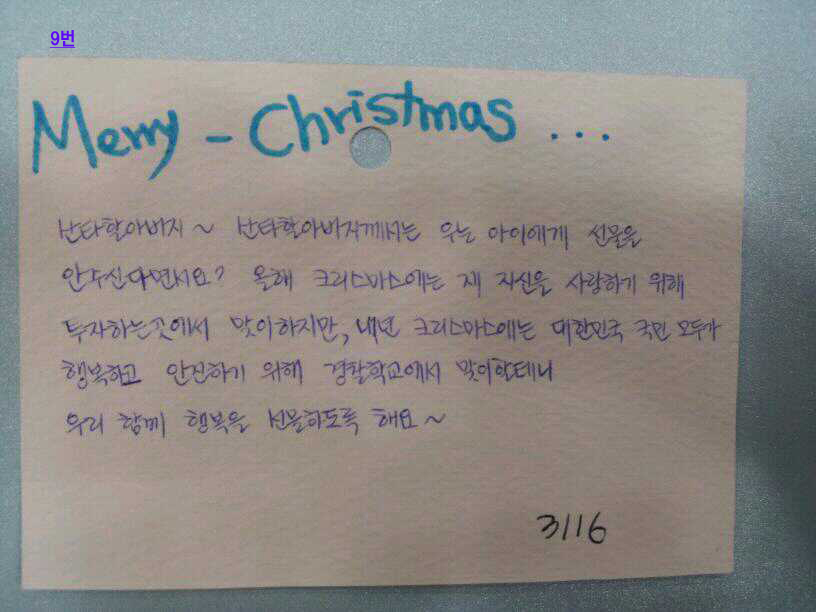 9번
Merry - Christmas ...
산타할아버지~ 산타할아버지께서는 우는 아이에게 선물을
안주신다면서요? 올해 크리스마스에는 제 자신을 사랑하기 위해
투자하는곳에서 맞이하지만, 내년 크리스마스에는 대한민국 국민 모두가
행복하고 안전하기 위해 경찰학교에서 맞이할테니
우리 함께 행복을 선물하도록 해요~
3116